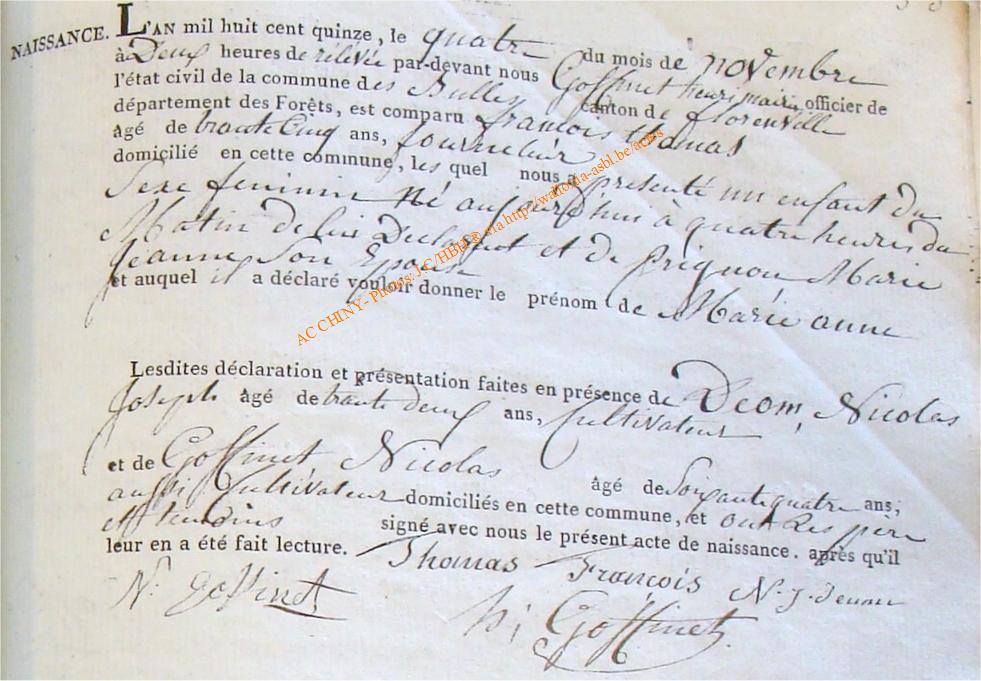 NAISSANCE. L'AN mil huit cent quinze, le quatre du mois de novembre
à Deux heures de relévée par-devant nous Goffinet henri maire officier de
l'état civil de la commune des Bulles canton de florenville
département des Forêts, est comparu françois thomas
âgé de trante Cinq ans, fourneleur
domicilié en cette commune, les quel nous a présenté un enfant du
Sexe feminin Né aujourd'huy à quatre heures du
Matin de lui Declarant et de prignon Marie
Jeanne Son Epouse
et auquel il a déclaré vouloir donner le prénom de Marie anne
AC CHINY - Photos: J.C/HBH © via http://wahoma-asbl.be/actes
Lesdites déclaration et présentation faites en présence de Deom, Nicolas
Joseph âgé de trante deux ans, Cultivateur
et de Goffinet Nicolas âgé de Soixante quatre ans,
aussi Cultivateur domiciliés en cette commune, et ont Les père
et temoins signé avec nous le présent acte de naissance. après qu'il
leur en a été fait lecture. Thomas François N. J. deum
N. Goffinet
h; Goffinet